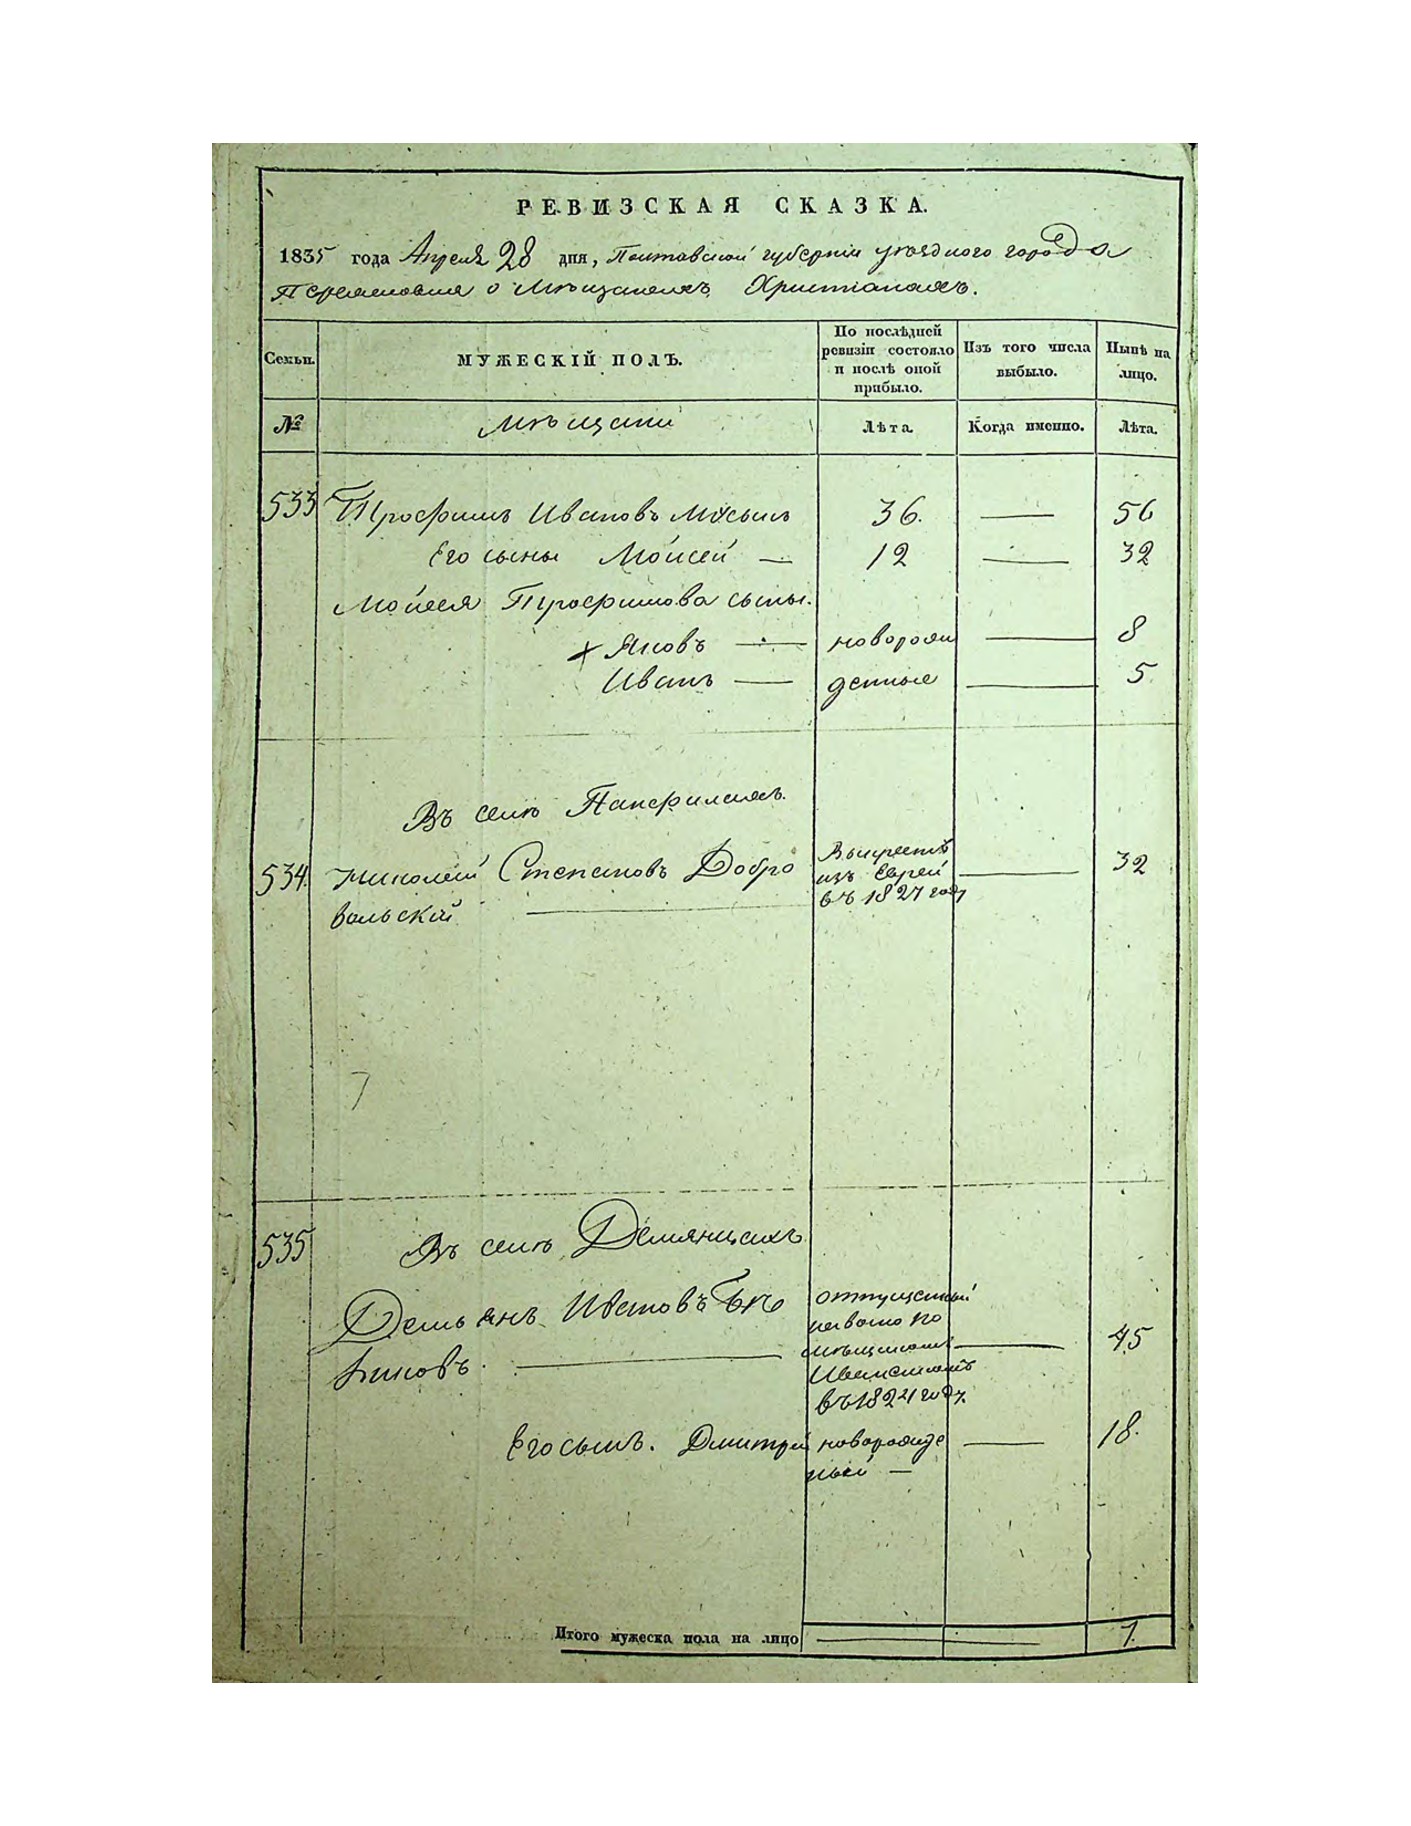 РЕВИЗСКАЯ СКАЗКА.
1835 года Апреля 28 дня, Полтавской губернии уѣзднаго города
Переяславля о Мѣщанахъ Христіанахъ.
Семьи.
МУЖЕСКІЙ ПОЛЪ.
По послѣдней ревизіи состояло и послѣ оной прибыло.
Изъ того числа выбыло.
Нынѣ на лицо.
№
Мѣщани
Лѣта.
Когда именно.
Лѣта.
533 Трофимъ Ивановъ 36. — 56
Его сыны Моисей — 12 — 32
Моисея Трофимова сыны.
Яковъ — новорож — 8
Иванъ — денные — 5
Въ семъ Панфилахъ.
534. Николай Степановъ Добро — 32
вольскій
Выкрестъ
изъ Еврей
въ 1827 году
535 Въ семъ Демянцахъ
Демьянъ Ивановъ
отпущенный
на волю по
мѣщикомъ — 45
въ 1821 году.
Его сынъ. Дмитрій новорожде — 18.
ный —
Итого мужеска пола на лицо — 7.